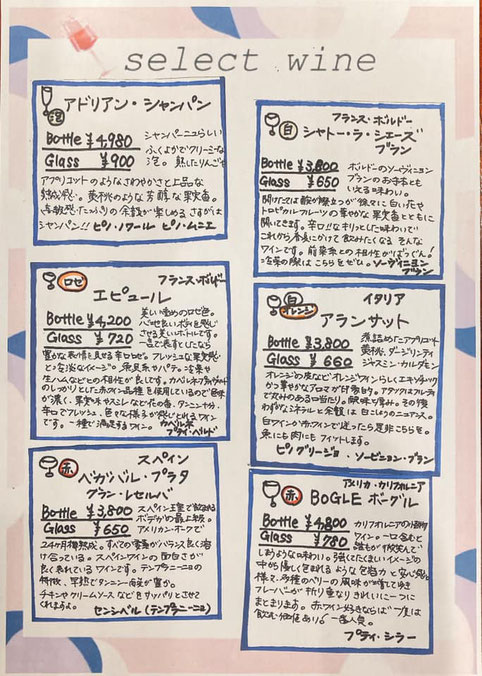 select wine
泡
アドリアン・シャンパン
Bottle ¥4,980
Glass ¥900
シャンパーニュらしい
ふくよかでクリーミーな
泡。熟したりんごや
アプリコットのようなさわやかさと上品な
熟成感。黄桃のような芳醇な果実香。
余韻が楽しめる さすがは
シャンパン!! ピノ・ノワール ピノ・ムニエ
白
フランス・ボルドー
シャトー・ラ・シェーズ
ブラン
Bottle ¥3,800
Glass ¥650
ボルドーのソーヴィニヨン
ブランのお手本とも
いえる味わい。
開けたては酸が際立つが徐々に白い花や
トロピカルフルーツの華やかな果実香とともに
開いてきます。辛口!!なキリッとした味わいで
これから春夏にかけて飲みたくなる そんな
ワインです。前菜系との相性がばつぐん!
冷菜の際はこちらをぜひ。ソーヴィニヨン
ブラン
ロゼ
フランス・ボルドー
エピュール
Bottle ¥4,200
Glass ¥720
美しい濃いめのロゼ色。
させる美しいボトルです。
一品で表すとしたなら
豊かな表情を見せる辛口ロゼ。フレッシュな果実感
と冷涼なイメージの魚貝系やパテ、冷菜や
生ハムなどとの相性が良いです。
のしっかりとした赤ワイン品種を使用しているので色味
が濃く、果実味やスミレなどの花の香、タンニン十分、
辛口でフレッシュ、色々な様子が感じとれるワイン
です。一種で満足するワイン。カベルネ
プティ・ベルド
白
オレンジ
イタリア
アランサット
Bottle ¥3,800
Glass ¥660
煮詰めたアプリコット
黄桃、ダージリンティ
ジャスミン・カルダモン
オレンジの皮などオレンジワインらしくエキゾチック
かつ華やかなアロマが印象的。アタックはフルーティ
で丸みのある口当たり。酸味も豊か。その後
わずかなミネラルと余韻は白こしょうのニュアンス。
白ワインか赤ワインで迷ったら是非こちらを。
魚にも肉にもフィットします。
ピノ グリージョ ソービニヨン・ブラン
赤
スペイン
ベガバル・プラタ
グラン・レセルバ
Bottle ¥3,800
Glass ¥650
スペイン王室で飲まれる
ボデガの最上級。
アメリカン・オークで
24ヶ月樽熟成。すべての要素がバランス良く溶
け合っている。スペインワインの面白さが
良く表れているワインです。テンプラニーニョの
特徴、芳醇でタンニン・肉感が豊か。
チキンやクリームソースなどをサッパリとさせて
くれますよ。センシベル(テンプラニーニョ)
赤
アメリカ・カリフォルニア
BOGLE ボーグル
Bottle ¥4,800
Glass ¥780
カリフォルニアの
ワイン。一口含むと
誰もが微笑んで
しまうような味わい。強くてたくましいイメージの
中から優しく包まれるような包容力と安心感と
様々。多種のベリーの風味が増して咲き
フレーバーが折り重なりきれいに一つに
まとまります。赤ワイン好きならば一度は
飲む価値あり。一番人気。
プティ・シラー